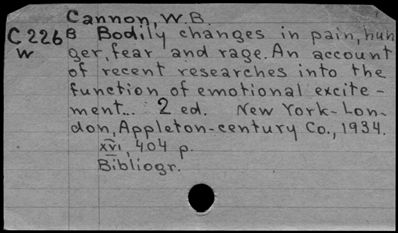 Cannon, W.B.
C.226 B Bodily changes in pain, hun-
w ger, fear and rage. An account
of recent researches into the
function of emotional excite-
ment... 2 ed. New York-Lon-
don, Appleton-century Co., 1934.
xvi, 404 p.
Bibliogr.